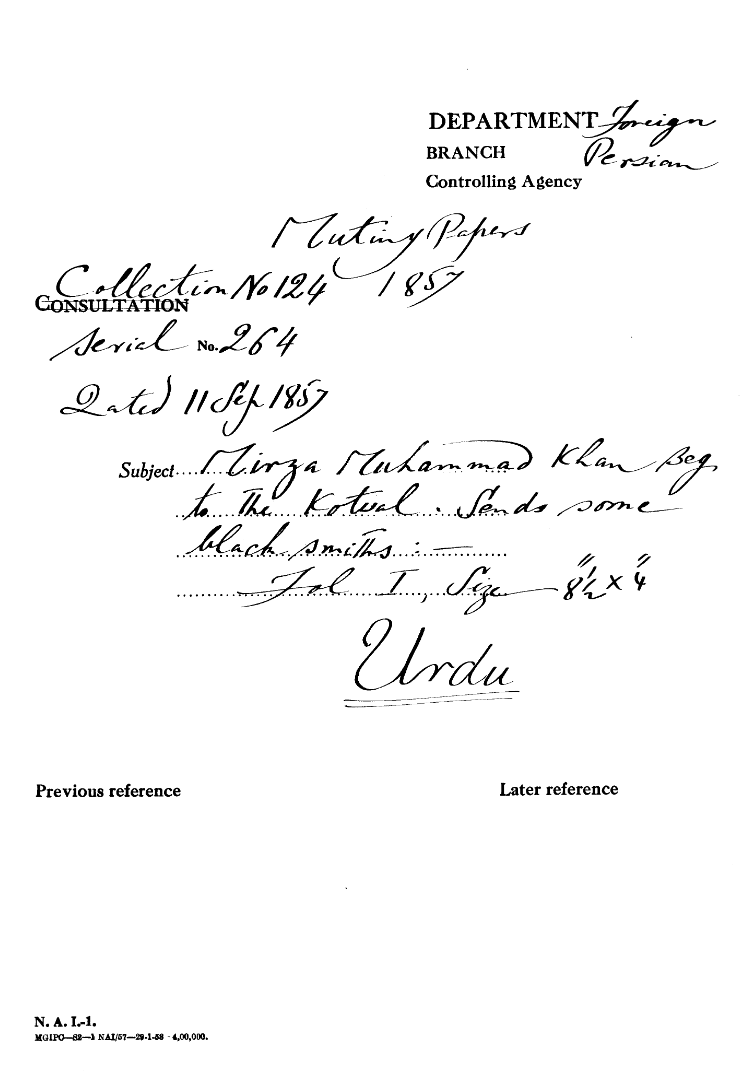 DEPARTMENT Foreign
BRANCH Persian
Controlling Agency
Mutiny Papers
Collection No 124 1857
CONSULTATION
Serial No. 264
Dated 11 Sep 1857
Subject.... Mirza Muhammad Khan Beg
to The Kotwal. Sends some
black smiths :—
Fol I, Size 8½" x 4"
Urdu
Previous reference Later reference
N. A. I.-1.
MGIPC—82—1 NAI/57—29-1-58 - 4,00,000.